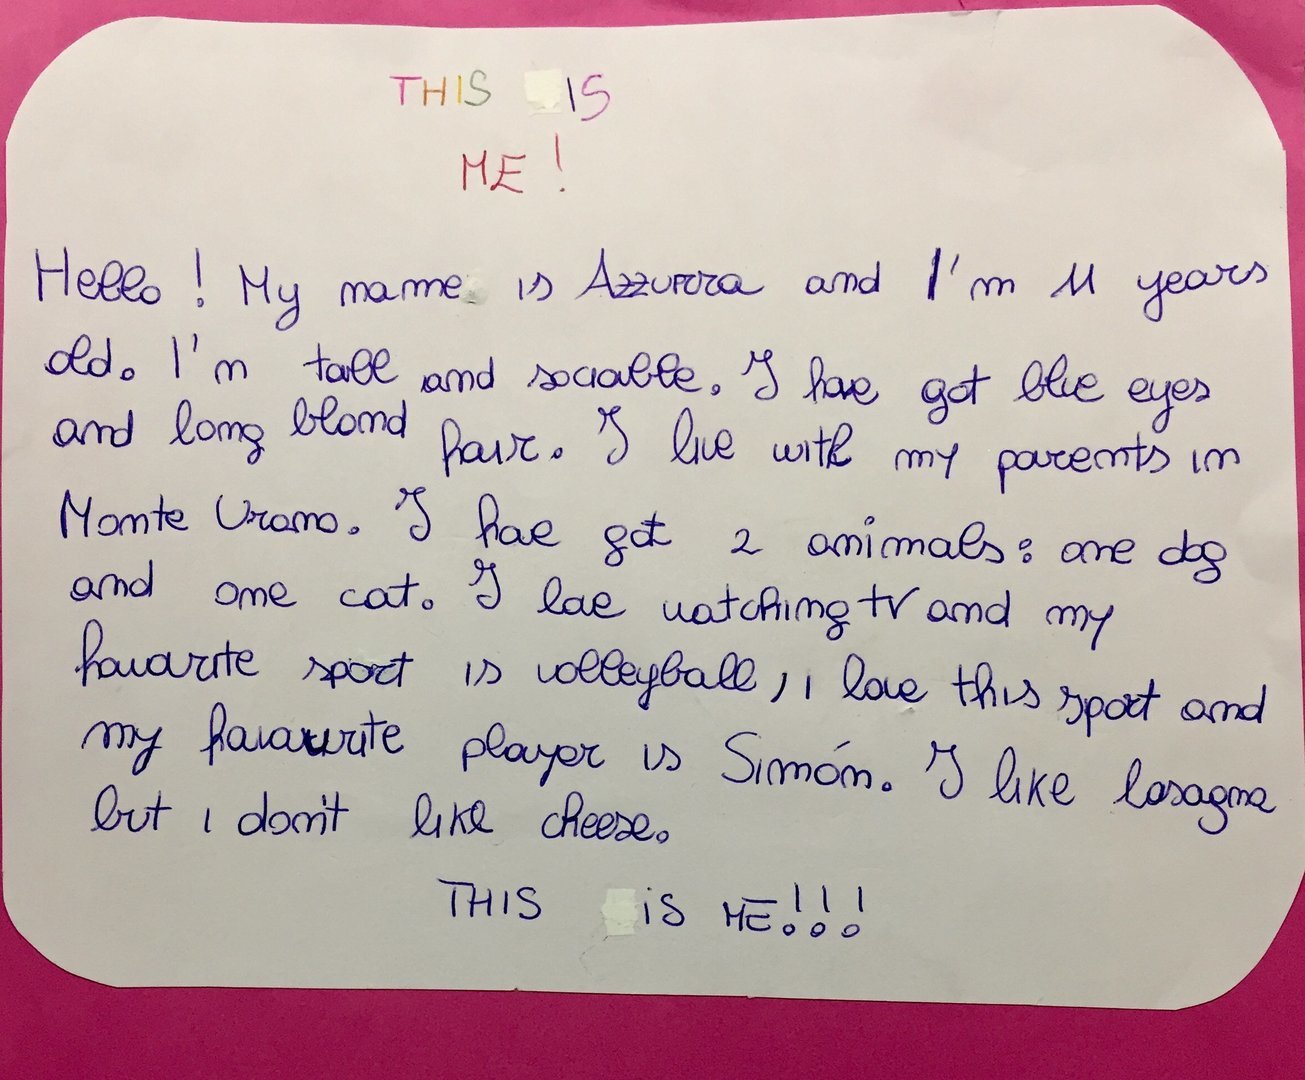 THIS IS
ME!
Hello! My name is Azzurra and I'm 11 years
old. I'm tall and sociable. I have got blue eyes
and long blond hair. I live with my parents in
Monte Urano. I have got 2 animals: one dog
and one cat. I love watching TV and my
favourite sport is volleyball, i love this sport and
my favourite player is Simón. I like lasagna
but i don't like cheese.
THIS is ME!!!